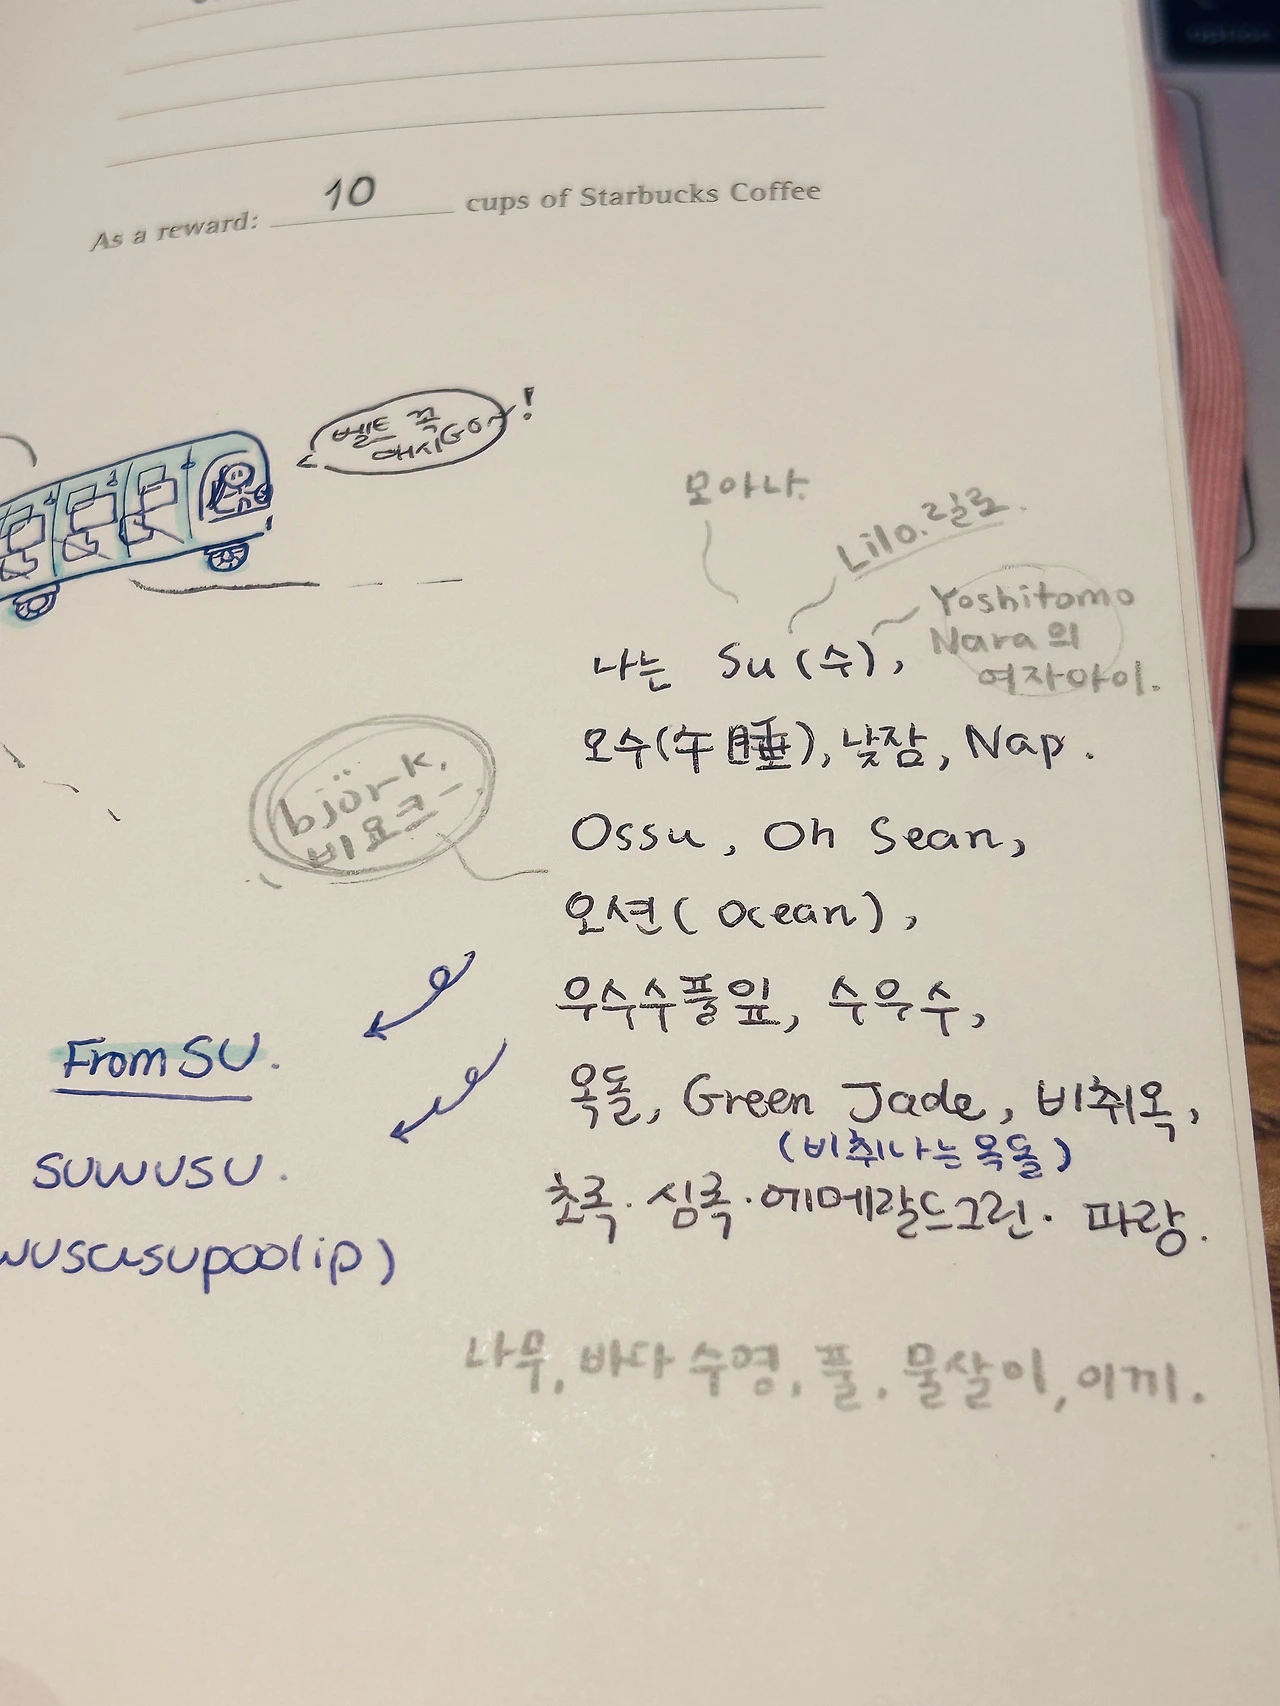 As a reward: 10 cups of Starbucks Coffee
벨트 꼭
매시GO~!
모아나.
Lilo. 릴로.
Yoshitomo
Nara의
여자아이.
나는 Su (수),
오수(午睡), 낮잠, Nap.
björk.
비요크
Ossu, Oh Sean,
오션( Ocean),
우수수풀잎, 수우수,
From SU.
옥돌, Green Jade, 비취옥,
(비취나는 옥돌)
SUWUSU.
초록. 심록. 에메랄드그린. 파랑.
wususupoolip)
나무, 바다 수영, 풀, 물살이, 이끼.